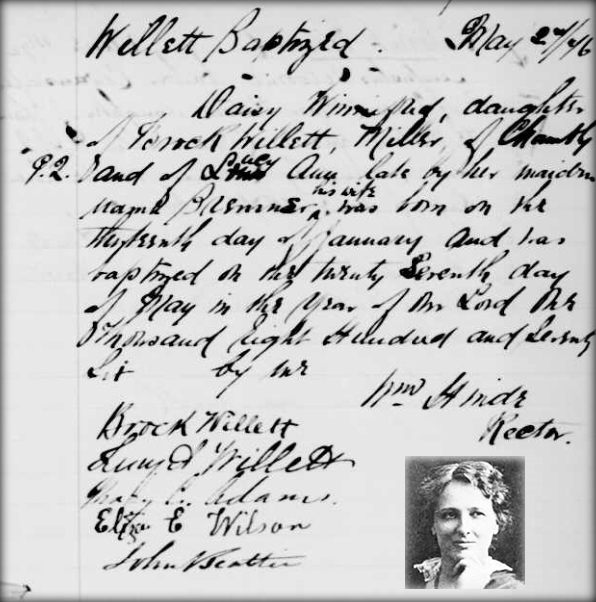 Willett Baptized - May 27/76
Daisy Winnifred, daughter
of Brock Willett, Miller, of Chambly
P.Q. and of Lucy Ann late by her maiden
name Bremner his wife was born on the
day of January and was
baptized on the twenty Seventh day
of May in the Year of Our Lord One
Thousand Eight Hundred and Seventy
Six by me
Wm Hinde
Rector.
Brock Willett
Lucy A Willett
Mary C. Adams.
Eliza E Wilson
John Beattie